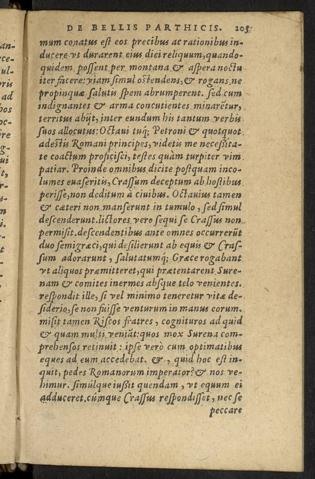 DE BELLIS PARTHICIS. 205
mum conatus est eos precibus ac rationibus in-
ducere vt durarent eius diei reliquum, quando-
quidem possent per montana & aspera noctu
iter facere: viam simul ostendens, & rogans, ne
propinquæ saluti spem abrumperent. sed cum
indignantes & arma concutientes minarẽtur,
territus abijt, inter eundum hii tantum verbis
suos allocutus: Octaui tuq; Petroni & quotquot
adestis Romani principes, videtis me necessita-
te coactum proficisci, testes quàm turpiter vim
patiar. Proinde omnibus dicite postquam inco-
lumes euaseritis, Crassum deceptum ab hostibus
perisse, non deditum à ciuibus. Octauius tamen
& cæteri non manserunt in tumulo, sed simul
descenderunt. lictores vero sequi se Crassus non
permisit. descendentibus ante omnes occurrerũt
duo semigræci, qui desilierunt ab equis & Cras-
sum adorarunt, salutatumq; Græce rogabant
vt aliquos præmitteret, qui prætentarent Sure-
nam & comites inermes absque telo venientes.
respondit ille, si vel minimo teneretur vitæ de-
siderio, se non fuisse venturum in manus eorum.
misit tamen Riscos fratres, cognituros ad quid
& quam multi venirẽt: quos mox Surena com-
prehensos retinuit: ipse verò cum optimatibus
eques ad eum accedebat. &, quid hoc est in-
quit, pedes Romanorum imperator? & nos ve-
himur. simulque iußit quendam, vt equum ei
adduceret. cúmque Crassus respondisset, nec se
peccare